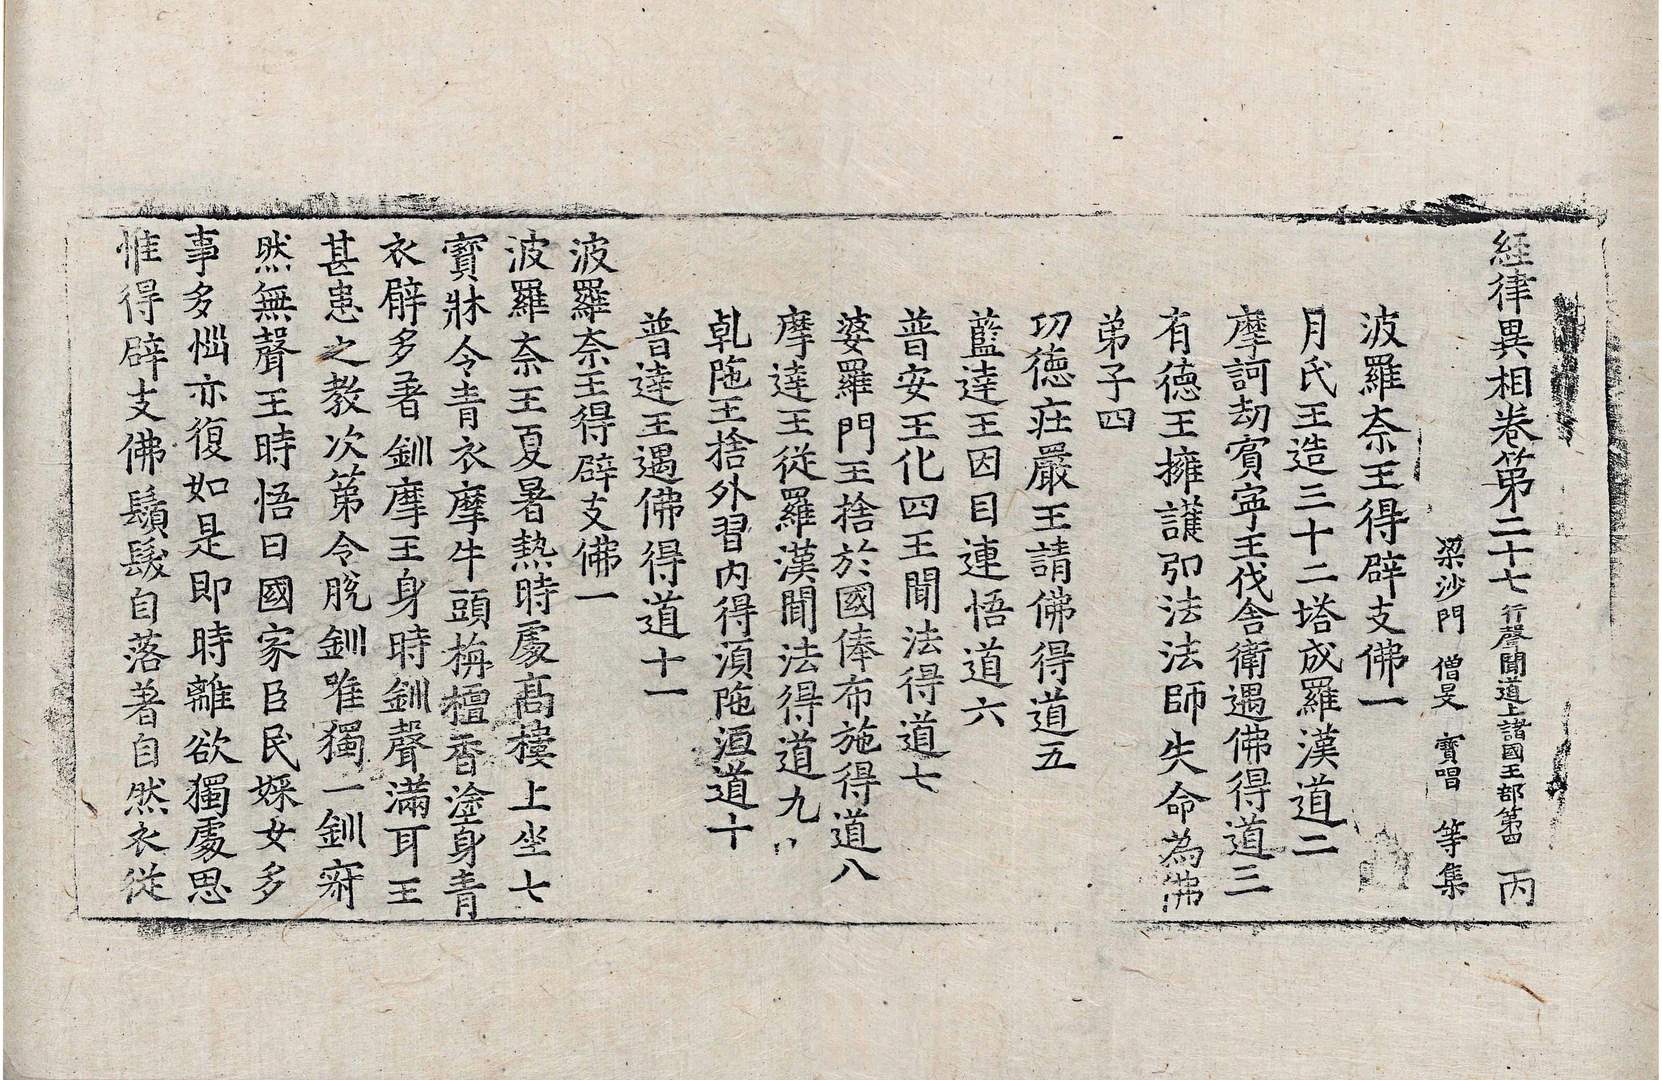 経律異相卷第二十七 行聲聞道上諸國王部第四 丙
梁沙門 僧旻 寶唱 等集
波羅奈王得辟支佛一
月氏王造三十二塔成羅漢道二
摩訶劫賓寧王伐舍衛遇佛得道三
有德王擁護弘法法師失命為佛
弟子四
功德莊嚴王請佛得道五
藍達王因目連悟道六
普安王化四王聞法得道七
婆羅門王捨於國俸布施得道八
摩達王從羅漢聞法得道九
乹陁王捨外習內得湏陁洹道十
普達王遇佛得道十一
波羅奈王得辟支佛一
波羅奈王夏暑熱時處高樓上坐七
寶牀令青衣摩牛頭栴檀香塗身青
衣臂多著釧摩王身時釧聲滿耳王
甚患之教次第令脫釧唯獨一釧寂
然無聲王時悟曰國家臣民婇女多
事多惱亦復如是即時離欲獨處思
惟得辟支佛鬚髮自落著自然衣從